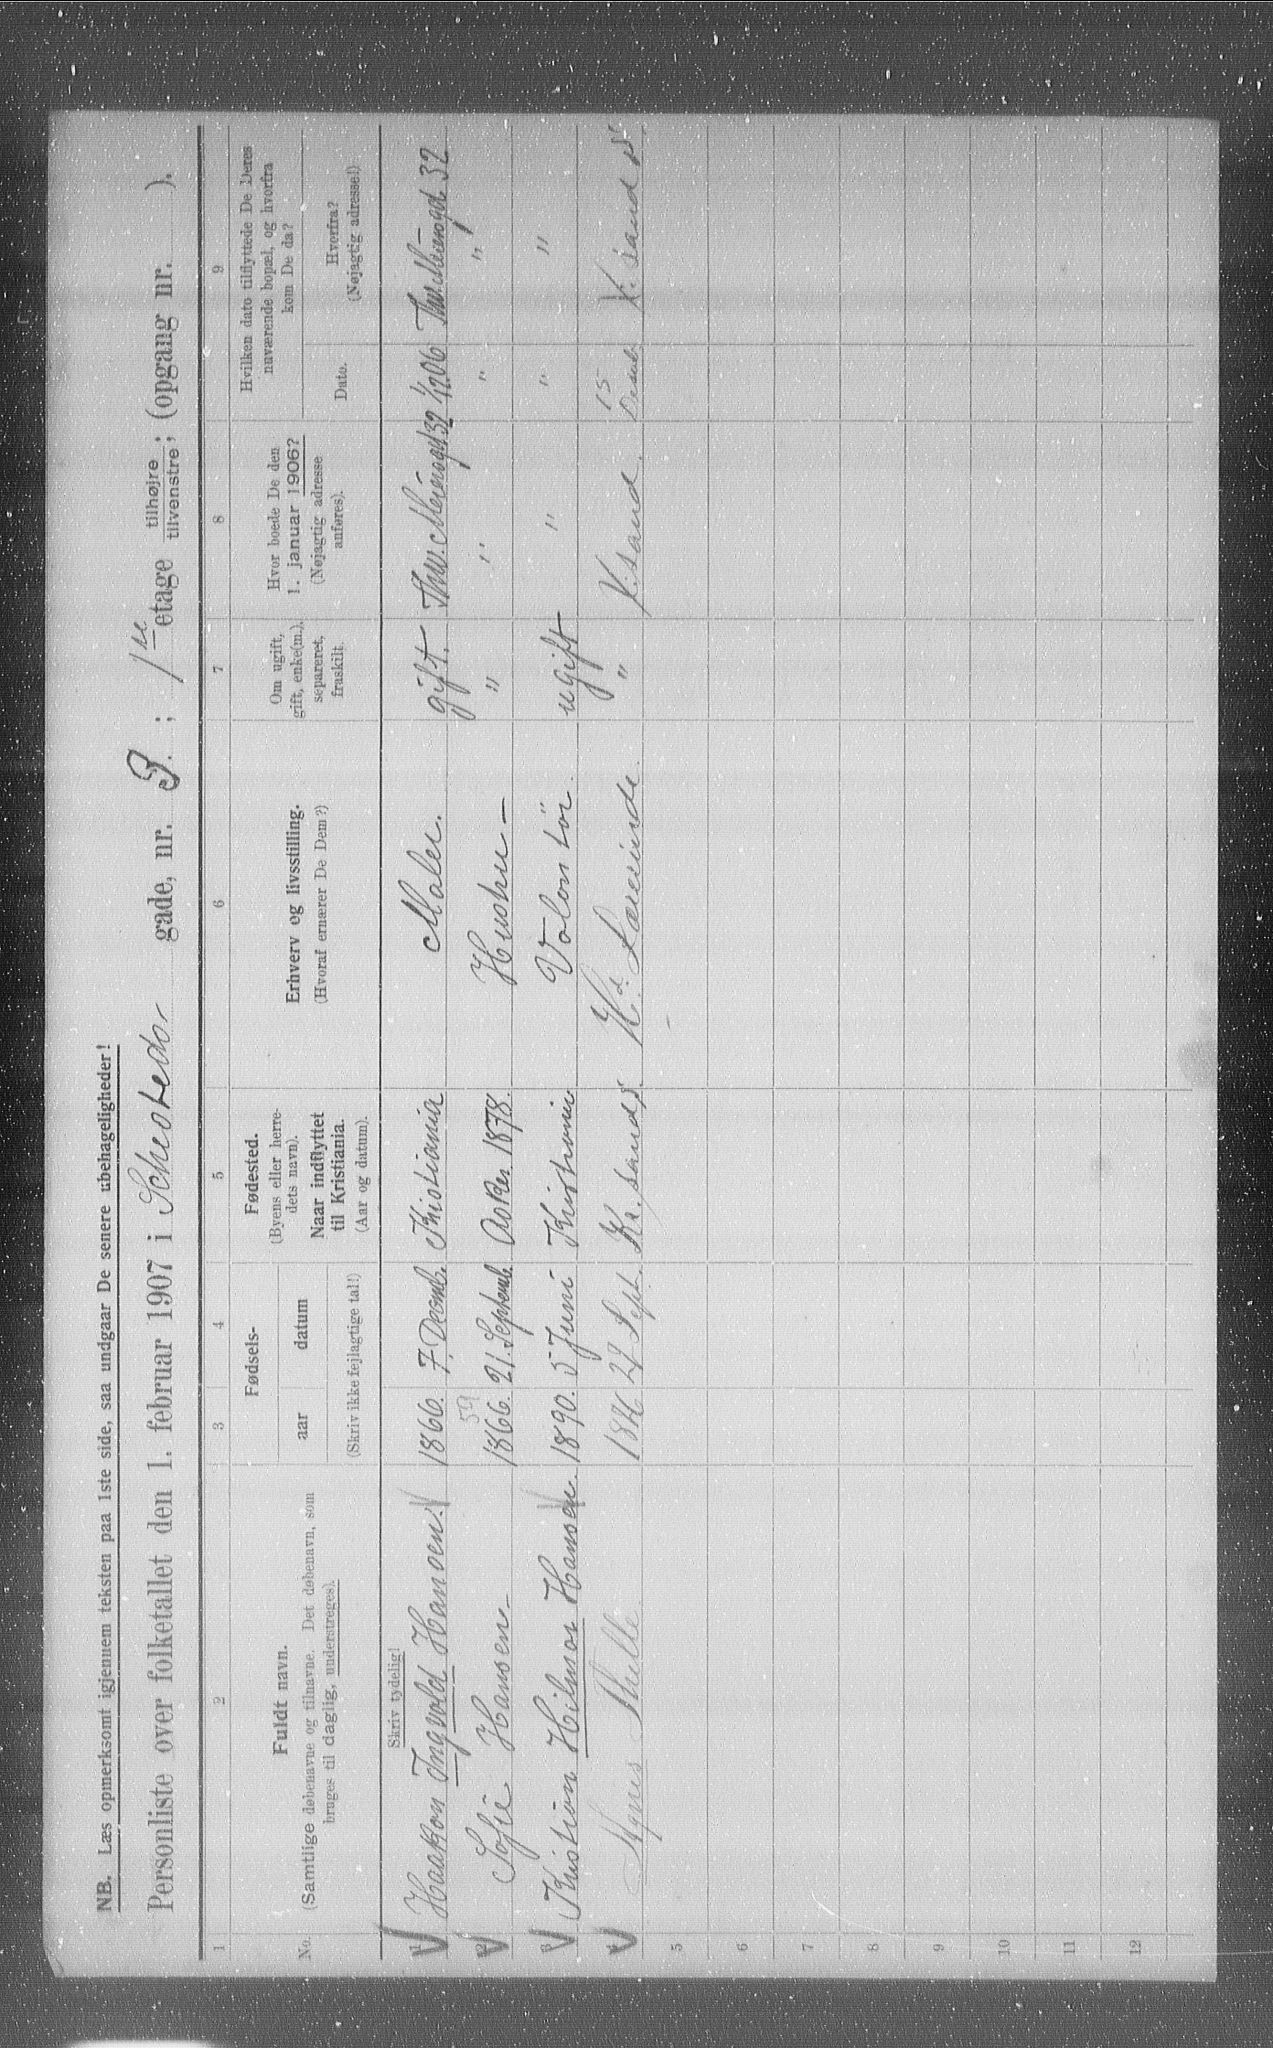 NB. Læs opmerksomt igjenuem teksten paa 1ste side, saa undgaar De senere ubehageligheder!
Personliste over folketallet den 1. februar 1907 i gade, nr. 3. ; 1 etage tilhøjre tilvenstre; (opgang nr. ).
1 2 3 4 5 6 7 8 9
No.
Fuldt navn.
(Samtlige døbenavne og tilnavne. Det døbenavn, som
bruges til daglig, understreges).
Fødsels-
aar datum
(Skriv ikke fejlagtige tal!)
Fødested.
(Byens eller herre-
dets navn).
Naar indflyttet
til Kristiania.
(Aar og datum).
Erhverv og livsstilling.
(Hvoraf ernærer De Dem?)
Om ugift,
gift, enke(m.),
separeret,
fraskilt.
Hvor boede De den
1. januar 1906?
(Nøjagtig adresse
anføres).
Hvilken dato tilflyttede De Deres
nuværende bopæl, og hvorfra
kom De da?
Dato.
Hvorfra?
(Nøjagtig adresse!)
Skriv tydelig!
1 Haakon Ingvold Hansen. 1866. 7. Decemb. Kristiania Maler. gift. Thv. Meiersgd 32 1/1206 Thv. Meiersgd. 32
59
2 Sofie Hansen 1866. 21. Septemb. Asker 1878. Hustru gift " " " "
3 Kristian Hilmar Hansen. 1890. 5 Juni Kristiania Volontör. ugift " " "
4 Agnes Thulle 18 Sept. Kr. sand S. Hd. Lærerinde. " K. sand. 15 Desbr. K. sand S.
5
6
7
8
9
10
11
12